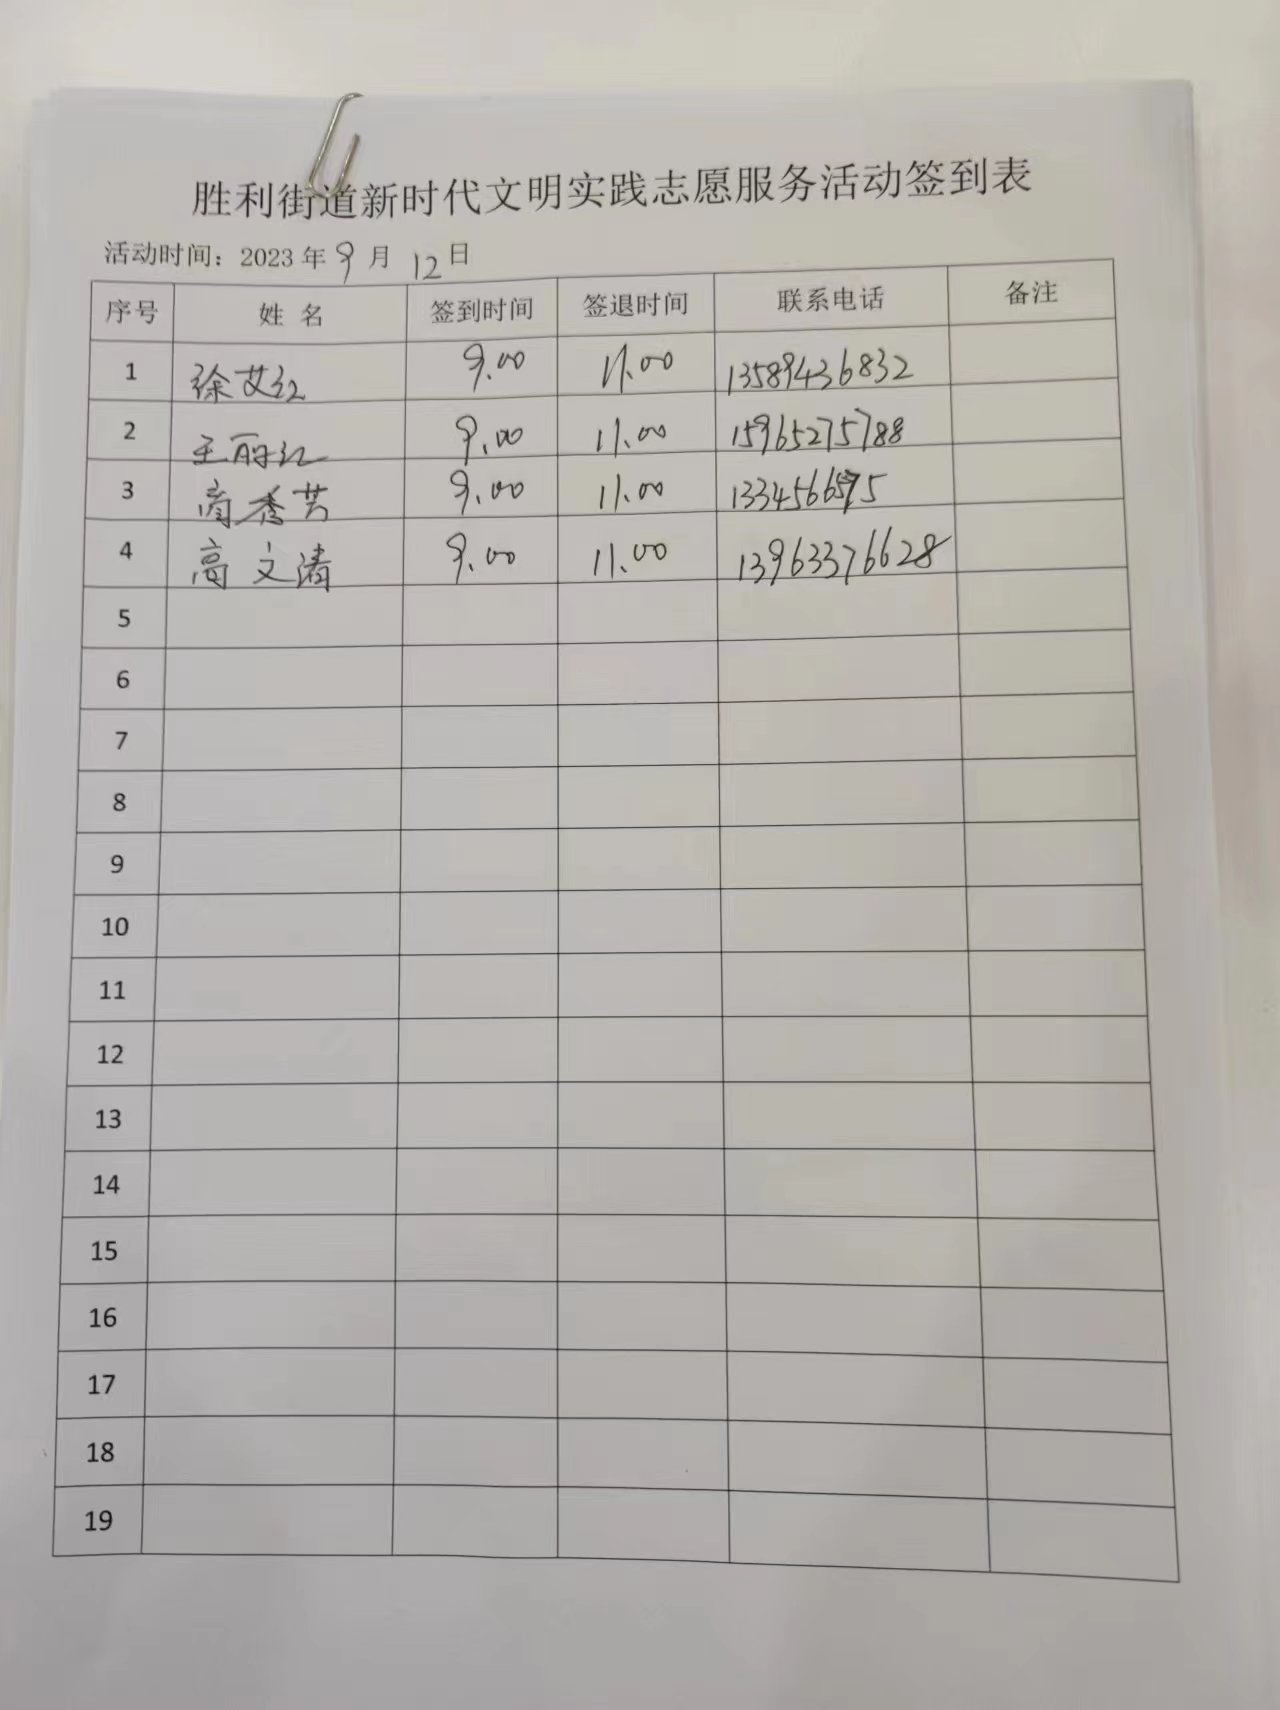 胜利街道新时代文明实践志愿服务活动签到表
活动时间：2023年9月12日
序号 姓名 签到时间 签退时间 联系电话 备注
1 徐艾红 9.00 11.00 13589436832
2 王丽红 9.00 11.00 15965275788
3 商秀芸 9.00 11.00
4 高文清 9.00 11.00 13963376628
5
6
7
8
9
10
11
12
13
14
15
16
17
18
19